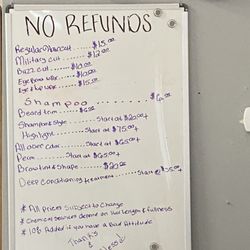 NO REFUNDS
Regular Haircut ..... $15.00
Military cut ..... $12.00
Buzz cut ..... $10.00
Eye Brow wax ..... $10.00
Eye & lip wax ..... $15.00
Shampoo ......... $6.00
Beard trim ..... $6.00
Shampoo & style ..... Start at $20.00+
Highlight ..... Start at $75.00+
All over color ..... Start at $65.00+
Perm ..... Start at $65.00+
Brow tint & Shape ..... $20.00
Deep conditioning treatment ..... Start @ $35.00+
* All prices Subject to Change
* Chemical Services depend on Hair length & fullness
* 10% Added if you have a Bad Attitude
Thank